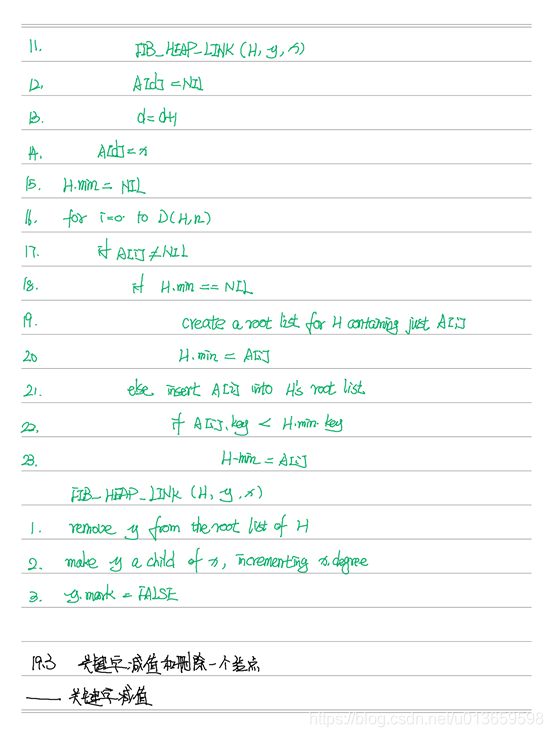 11. FIB_HEAP_LINK (H, y, x)
12. A[d] = NIL
13. d = d+1
14. A[d] = x
15. H.min = NIL
16. for i=0 to D(H.n)
17. if A[i] ≠ NIL
18. if H.min == NIL
19. create a root list for H containing just A[i]
20 H.min = A[i]
21. else insert A[i] into H's root list
22. if A[i].key < H.min.key
23. H.min = A[i]
FIB_HEAP_LINK (H, y, x)
1. remove y from the root list of H
2. make y a child of x, incrementing x.degree
3. y.mark = FALSE
19.3 关键字减值和删除一个结点
—— 关键字减值
https://blog.csdn.net/u013659598